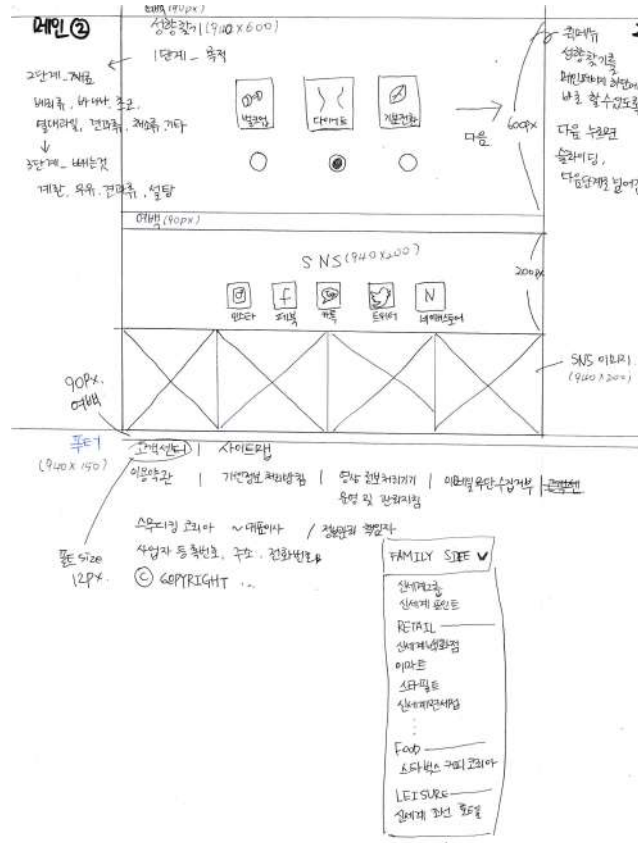 여백(90px)
메인 ②
성향찾기(940x600)
1단계 - 목적
2단계 - 재료
베리류, 바나나, 초코,
열대과일, 견과류, 채소류, 기타
3단계 - 빼는것
계란, 우유, 견과류, 설탕
벌크업
다이어트
기분전환
다음
600px
퀵메뉴
성향찾기를
메인페이지 하단에
바로 할 수 있도록
다음 누르면
슬라이딩,
다음단계로 넘어감
여백(90px)
SNS(940x200)
200px
인스타
페북
카톡
트위터
N
네이버스토어
SNS 이미지
(940x200)
90px.
여백
푸터
(940x150)
고객센터 | 사이트맵
이용약관 | 개인정보 처리방침 | 영상정보처리기기 | 이메일무단수집거부 |
운영 및 관리지침
스무디킹 코리아 ~대표이사 / 정보관리 책임자
사업자 등록번호, 주소, 전화번호
© COPYRIGHT ...
폰트 size
12px.
FAMILY SITE ∨
신세계그룹
신세계 포인트
RETAIL
신세계백화점
이마트
스타필드
신세계면세점
FOOD
스타벅스 커피 코리아
LEISURE
신세계 조선 호텔